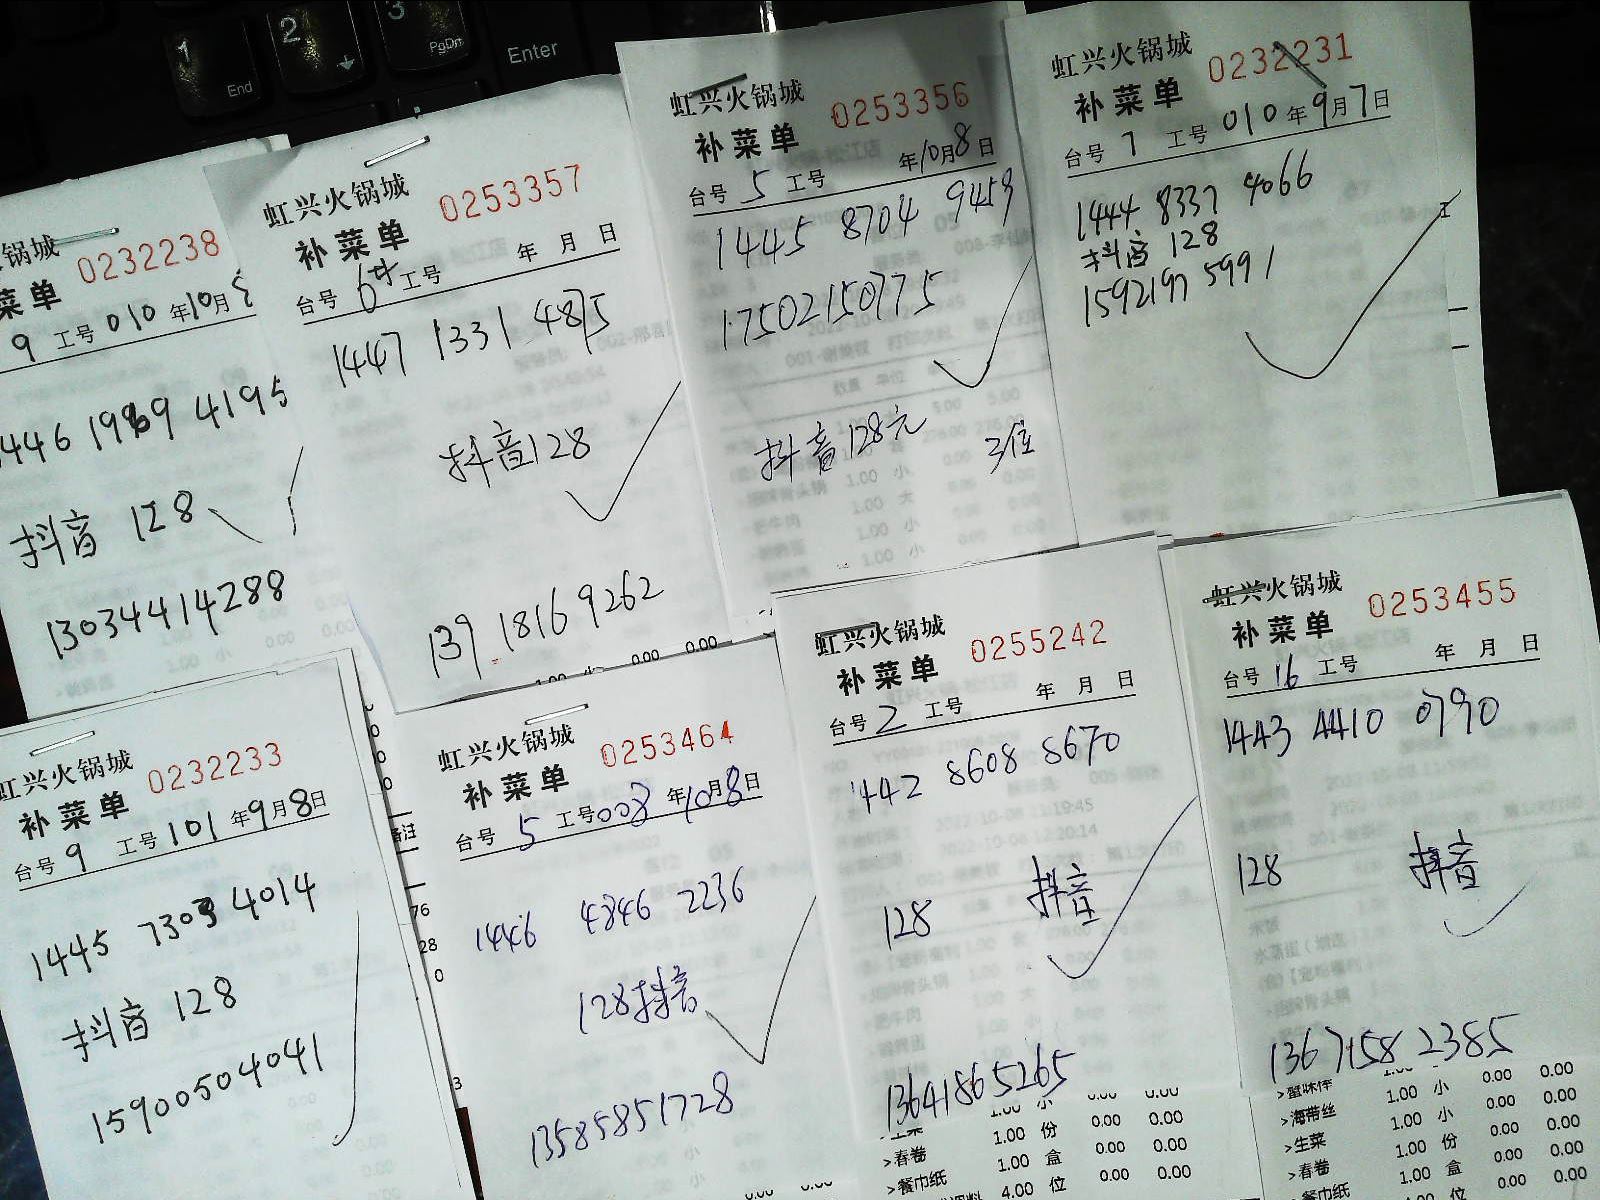 1
End
2
3
PgDn
Enter
锅城
菜单
0232238
9 工号 010 年10月
446 1969 4195
抖音 128
13034414288
虹兴火锅城
补菜单
0253357
台号 6 工号 年 月 日
1447 1331 4875
抖音128
139 1816 9262
虹兴火锅城
补菜单
0253356
台号 5 工号 年10月8日
1445 8704 9459
17502150775
抖音128元 3位
虹兴火锅城
补菜单
0232231
台号 7 工号 010 年9月7日
1444 8337 4066
抖音 128
1592197 5991
虹兴火锅城
补菜单
0232233
台号 9 工号 101 年9月8日
1445 7303 4014
抖音 128
15900504041
虹兴火锅城
补菜单
0253464
台号 5 工号008 年10月8日
1446 4846 2236
128抖音
13585851728
虹兴火锅城
补菜单
0255242
台号 2 工号 年 月 日
1442 8608 8670
128 抖音
13641865265
>春卷 1.00 份 0.00 0.00
>餐巾纸 1.00 盒 0.00 0.00
4.00 位 0.00 0.00
虹兴火锅城
补菜单
0253455
台号 16 工号 年 月 日
1443 4410 0790
128 抖音
136 7158 2385
>蟹味棒 1.00 小 0.00 0.00
>海带丝 1.00 小 0.00 0.00
>生菜 1.00 份 0.00 0.00
>春卷 1.00 盒 0.00 0.00
>餐巾纸 位